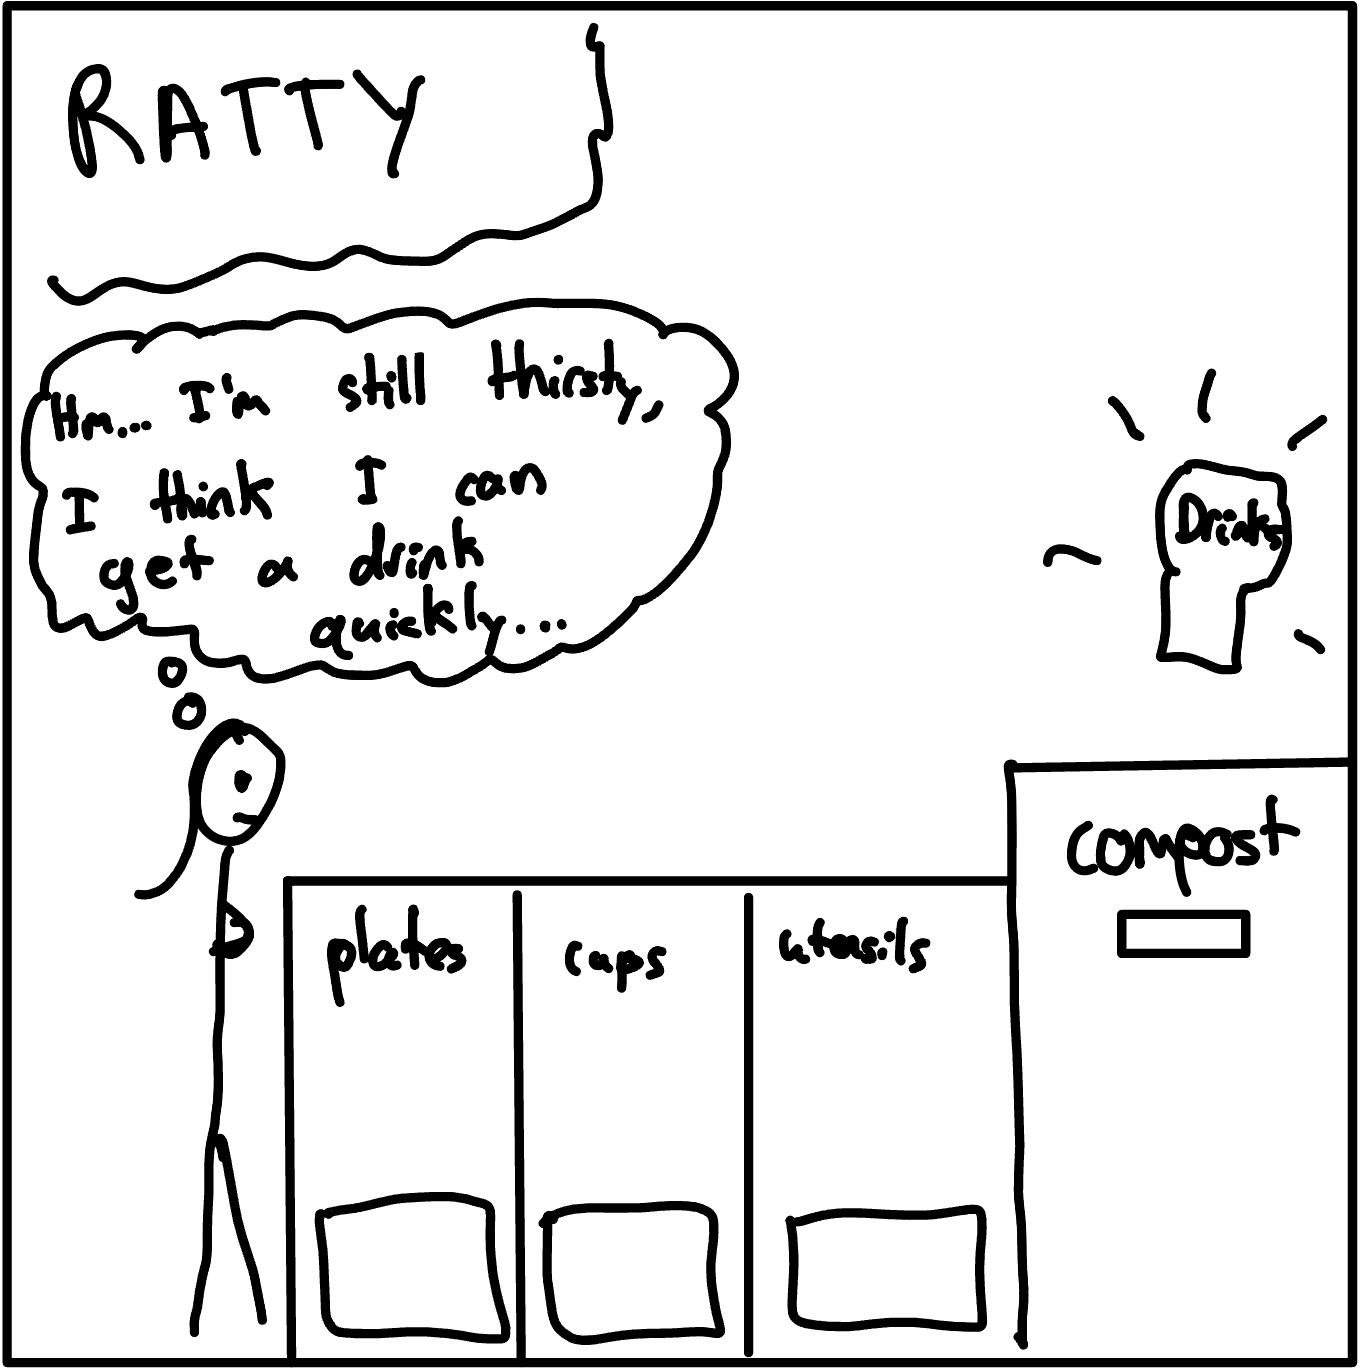 RATTY
Hm... I'm still thirsty,
I think I can
get a drink
quickly...
Drinks
compost
plates
cups
utensils